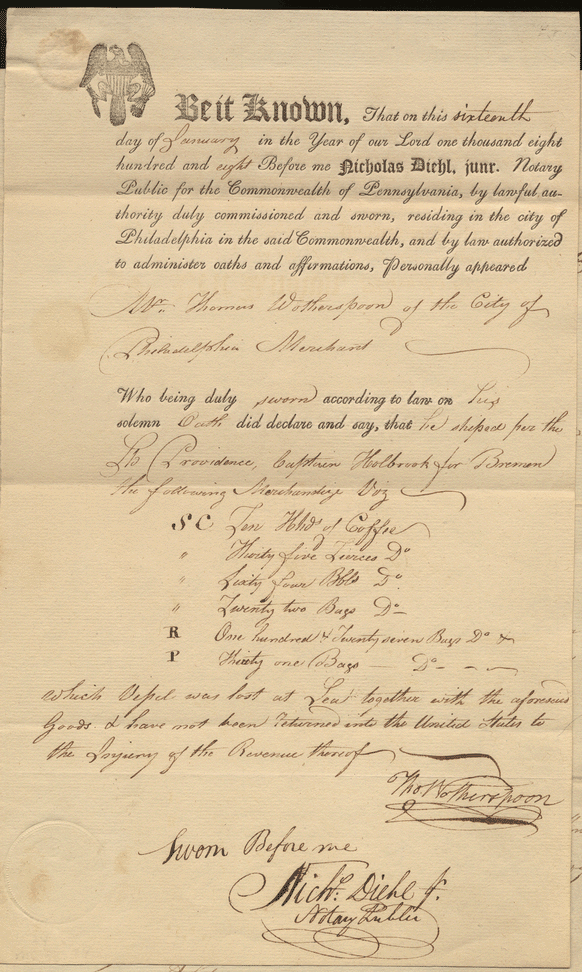 Be it Known, That on this sixteenth
day of January in the Year of our Lord one thousand eight
hundred and eight Before me Nicholas Diehl, junr. Notary
Public for the Commonwealth of Pennsylvania, by lawful au-
thority duly commissioned and sworn, residing in the city of
Philadelphia in the said Commonwealth, and by law authorized
to administer oaths and affirmations, Personally appeared
Mr. Thomas Wotherspoon of the City of
Philadelphia Merchant
Who being duly sworn according to law on his
solemn Oath did declare and say, that he shiped per the
Providence, Captain Holbrook for Bremen
the following Merchandize Viz
S C Ten Hhds of Coffee
" Thirty five Tierces Do
" Sixty four Bbls Do
" Twenty two Bags Do
R One hundred & Twenty seven Bags Do &
P Thirty one Bags Do
which Vessel was lost at Sea together with the aforesaid
Goods & have not been returned into the United States to
the Injury of the Revenue thereof
Tho Wotherspoon
Sworn Before me
Nichs. Diehl Jr.
Notary Public